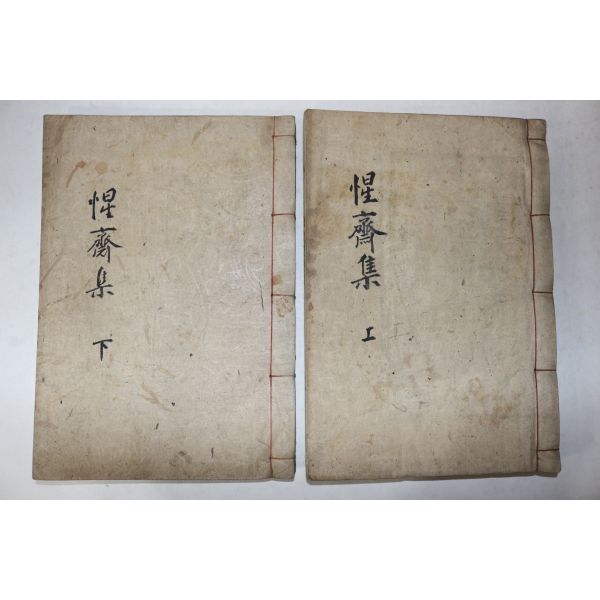 惺齋集 上
惺齋集 下